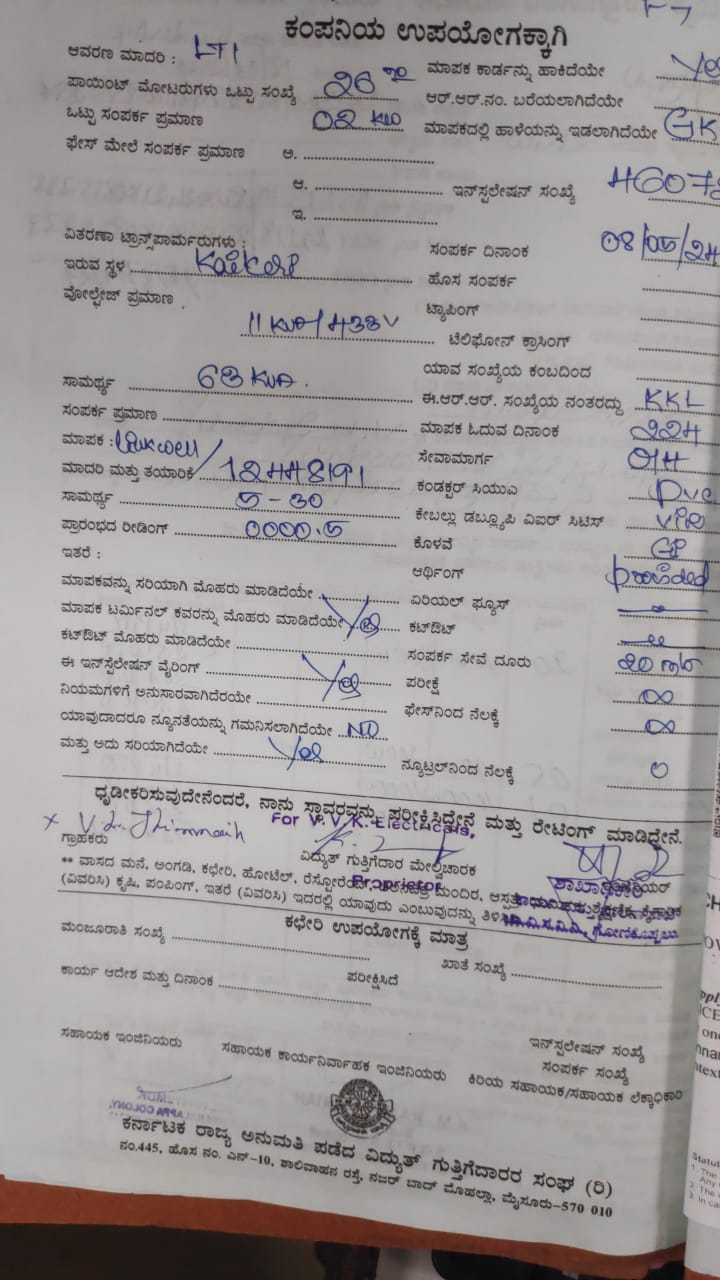 ಕಂಪನಿಯ ಉಪಯೋಗಕ್ಕಾಗಿ
ಆವರಣ ಮಾದರಿ : LT1
ಮಾಪಕ ಕಾರ್ಡನ್ನು ಹಾಕಿದೆಯೇ Yes
ಪಾಯಿಂಟ್ ಮೋಟರುಗಳು ಒಟ್ಟು ಸಂಖ್ಯೆ 26
ಆರ್.ಆರ್.ನಂ. ಬರೆಯಲಾಗಿದೆಯೇ
ಒಟ್ಟು ಸಂಪರ್ಕ ಪ್ರಮಾಣ 02 KW
ಮಾಪಕದಲ್ಲಿ ಹಾಳೆಯನ್ನು ಇಡಲಾಗಿದೆಯೇ GK
ಫೇಸ್ ಮೇಲೆ ಸಂಪರ್ಕ ಪ್ರಮಾಣ ಅ.
ಆ.
ಇನ್‌ಸ್ಟಲೇಷನ್ ಸಂಖ್ಯೆ 46078
ಇ.
ವಿತರಣಾ ಟ್ರಾನ್ಸ್‌ಪಾರ್ಮರುಗಳು :
ಸಂಪರ್ಕ ದಿನಾಂಕ 08/05/24
ಇರುವ ಸ್ಥಳ
ಹೊಸ ಸಂಪರ್ಕ
ವೋಲ್ಟೇಜ್ ಪ್ರಮಾಣ
ಟ್ಯಾಪಿಂಗ್
11 KVA/433V
ಟೆಲಿಫೋನ್ ಕ್ರಾಸಿಂಗ್
ಯಾವ ಸಂಖ್ಯೆಯ ಕಂಬದಿಂದ
ಸಾಮರ್ಥ್ಯ 63 KVA.
ಈ.ಆರ್.ಆರ್. ಸಂಖ್ಯೆಯ ನಂತರದ್ದು KKL
ಸಂಪರ್ಕ ಪ್ರಮಾಣ
ಮಾಪಕ ಓದುವ ದಿನಾಂಕ 224
ಮಾಪಕ :
ಸೇವಾಮಾರ್ಗ O/H
ಮಾದರಿ ಮತ್ತು ತಯಾರಿಕೆ 12448191
ಕಂಡಕ್ಟರ್ ಸಿಯುಎ PVC
ಸಾಮರ್ಥ್ಯ 5-30
ಕೇಬಲ್ಲು ಡಬ್ಲ್ಯೂಪಿ ವಿಐರ್ ಸಿಟಿಸ್ VIR
ಪ್ರಾರಂಭದ ರೀಡಿಂಗ್ 0000.5
ಕೊಳವೆ GP
ಇತರೆ :
ಆರ್ಥಿಂಗ್ provided
ಮಾಪಕವನ್ನು ಸರಿಯಾಗಿ ಮೊಹರು ಮಾಡಿದೆಯೇ
ಏರಿಯಲ್ ಫ್ಯೂಸ್
ಮಾಪಕ ಟರ್ಮಿನಲ್ ಕವರನ್ನು ಮೊಹರು ಮಾಡಿದೆಯೇ Yes
ಕಟ್‌ಔಟ್
ಕಟ್‌ಔಟ್ ಮೊಹರು ಮಾಡಿದೆಯೇ
ಸಂಪರ್ಕ ಸೇವೆ ದೂರು 20 mtr
ಈ ಇನ್‌ಸ್ಟಲೇಷನ್ ವೈರಿಂಗ್ Yes
ಪರೀಕ್ಷೆ ∞
ನಿಯಮಗಳಿಗೆ ಅನುಸಾರವಾಗಿದೆರಯೇ
ಫೇಸ್‌ನಿಂದ ನೆಲಕ್ಕೆ ∞
ಯಾವುದಾದರೂ ನ್ಯೂನತೆಯನ್ನು ಗಮನಿಸಲಾಗಿದೆಯೇ NO
ಮತ್ತು ಅದು ಸರಿಯಾಗಿದೆಯೇ Yes
ನ್ಯೂಟ್ರಲ್‌ನಿಂದ ನೆಲಕ್ಕೆ 0
ಧೃಡೀಕರಿಸುವುದೇನೆಂದರೆ, ನಾನು ಸ್ಥಾವರವನ್ನು ಪರೀಕ್ಷಿಸಿದ್ದೇನೆ ಮತ್ತು ರೇಟಿಂಗ್ ಮಾಡಿದ್ದೇನೆ.
For V.V.K. Electricals,
ಗ್ರಾಹಕರು
ವಿದ್ಯುತ್ ಗುತ್ತಿಗೆದಾರ ಮೇಲ್ವಿಚಾರಕ
Proprietor
ಶಾಖಾಧಿಕಾರಿ
** ವಾಸದ ಮನೆ, ಅಂಗಡಿ, ಕಛೇರಿ, ಹೋಟೆಲ್, ರೆಸ್ಟೋರೆಂಟ್, ಮಂದಿರ, ಆಸ್ಪತ್ರೆ
(ವಿವರಿಸಿ) ಕೃಷಿ, ಪಂಪಿಂಗ್, ಇತರೆ (ವಿವರಿಸಿ) ಇದರಲ್ಲಿ ಯಾವುದು ಎಂಬುವುದನ್ನು
ಕಛೇರಿ ಉಪಯೋಗಕ್ಕೆ ಮಾತ್ರ
ಮಂಜೂರಾತಿ ಸಂಖ್ಯೆ
ಖಾತೆ ಸಂಖ್ಯೆ
ಕಾರ್ಯ ಆದೇಶ ಮತ್ತು ದಿನಾಂಕ
ಪರೀಕ್ಷಿಸಿದೆ
ಇನ್‌ಸ್ಟಲೇಷನ್ ಸಂಖ್ಯೆ
ಸಂಪರ್ಕ ಸಂಖ್ಯೆ
ಸಹಾಯಕ ಇಂಜಿನಿಯರು
ಸಹಾಯಕ ಕಾರ್ಯನಿರ್ವಾಹಕ ಇಂಜಿನಿಯರು
ಕಿರಿಯ ಸಹಾಯಕ/ಸಹಾಯಕ ಲೆಕ್ಕಾಧಿಕಾರಿ
ಕರ್ನಾಟಕ ರಾಜ್ಯ ಅನುಮತಿ ಪಡೆದ ವಿದ್ಯುತ್ ಗುತ್ತಿಗೆದಾರರ ಸಂಘ (ರಿ)
ನಂ.445, ಹೊಸ ನಂ. ಎನ್-10, ಶಾಲಿವಾಹನ ರಸ್ತೆ, ನಜರ್ ಬಾದ್ ಮೊಹಲ್ಲಾ, ಮೈಸೂರು-570 010